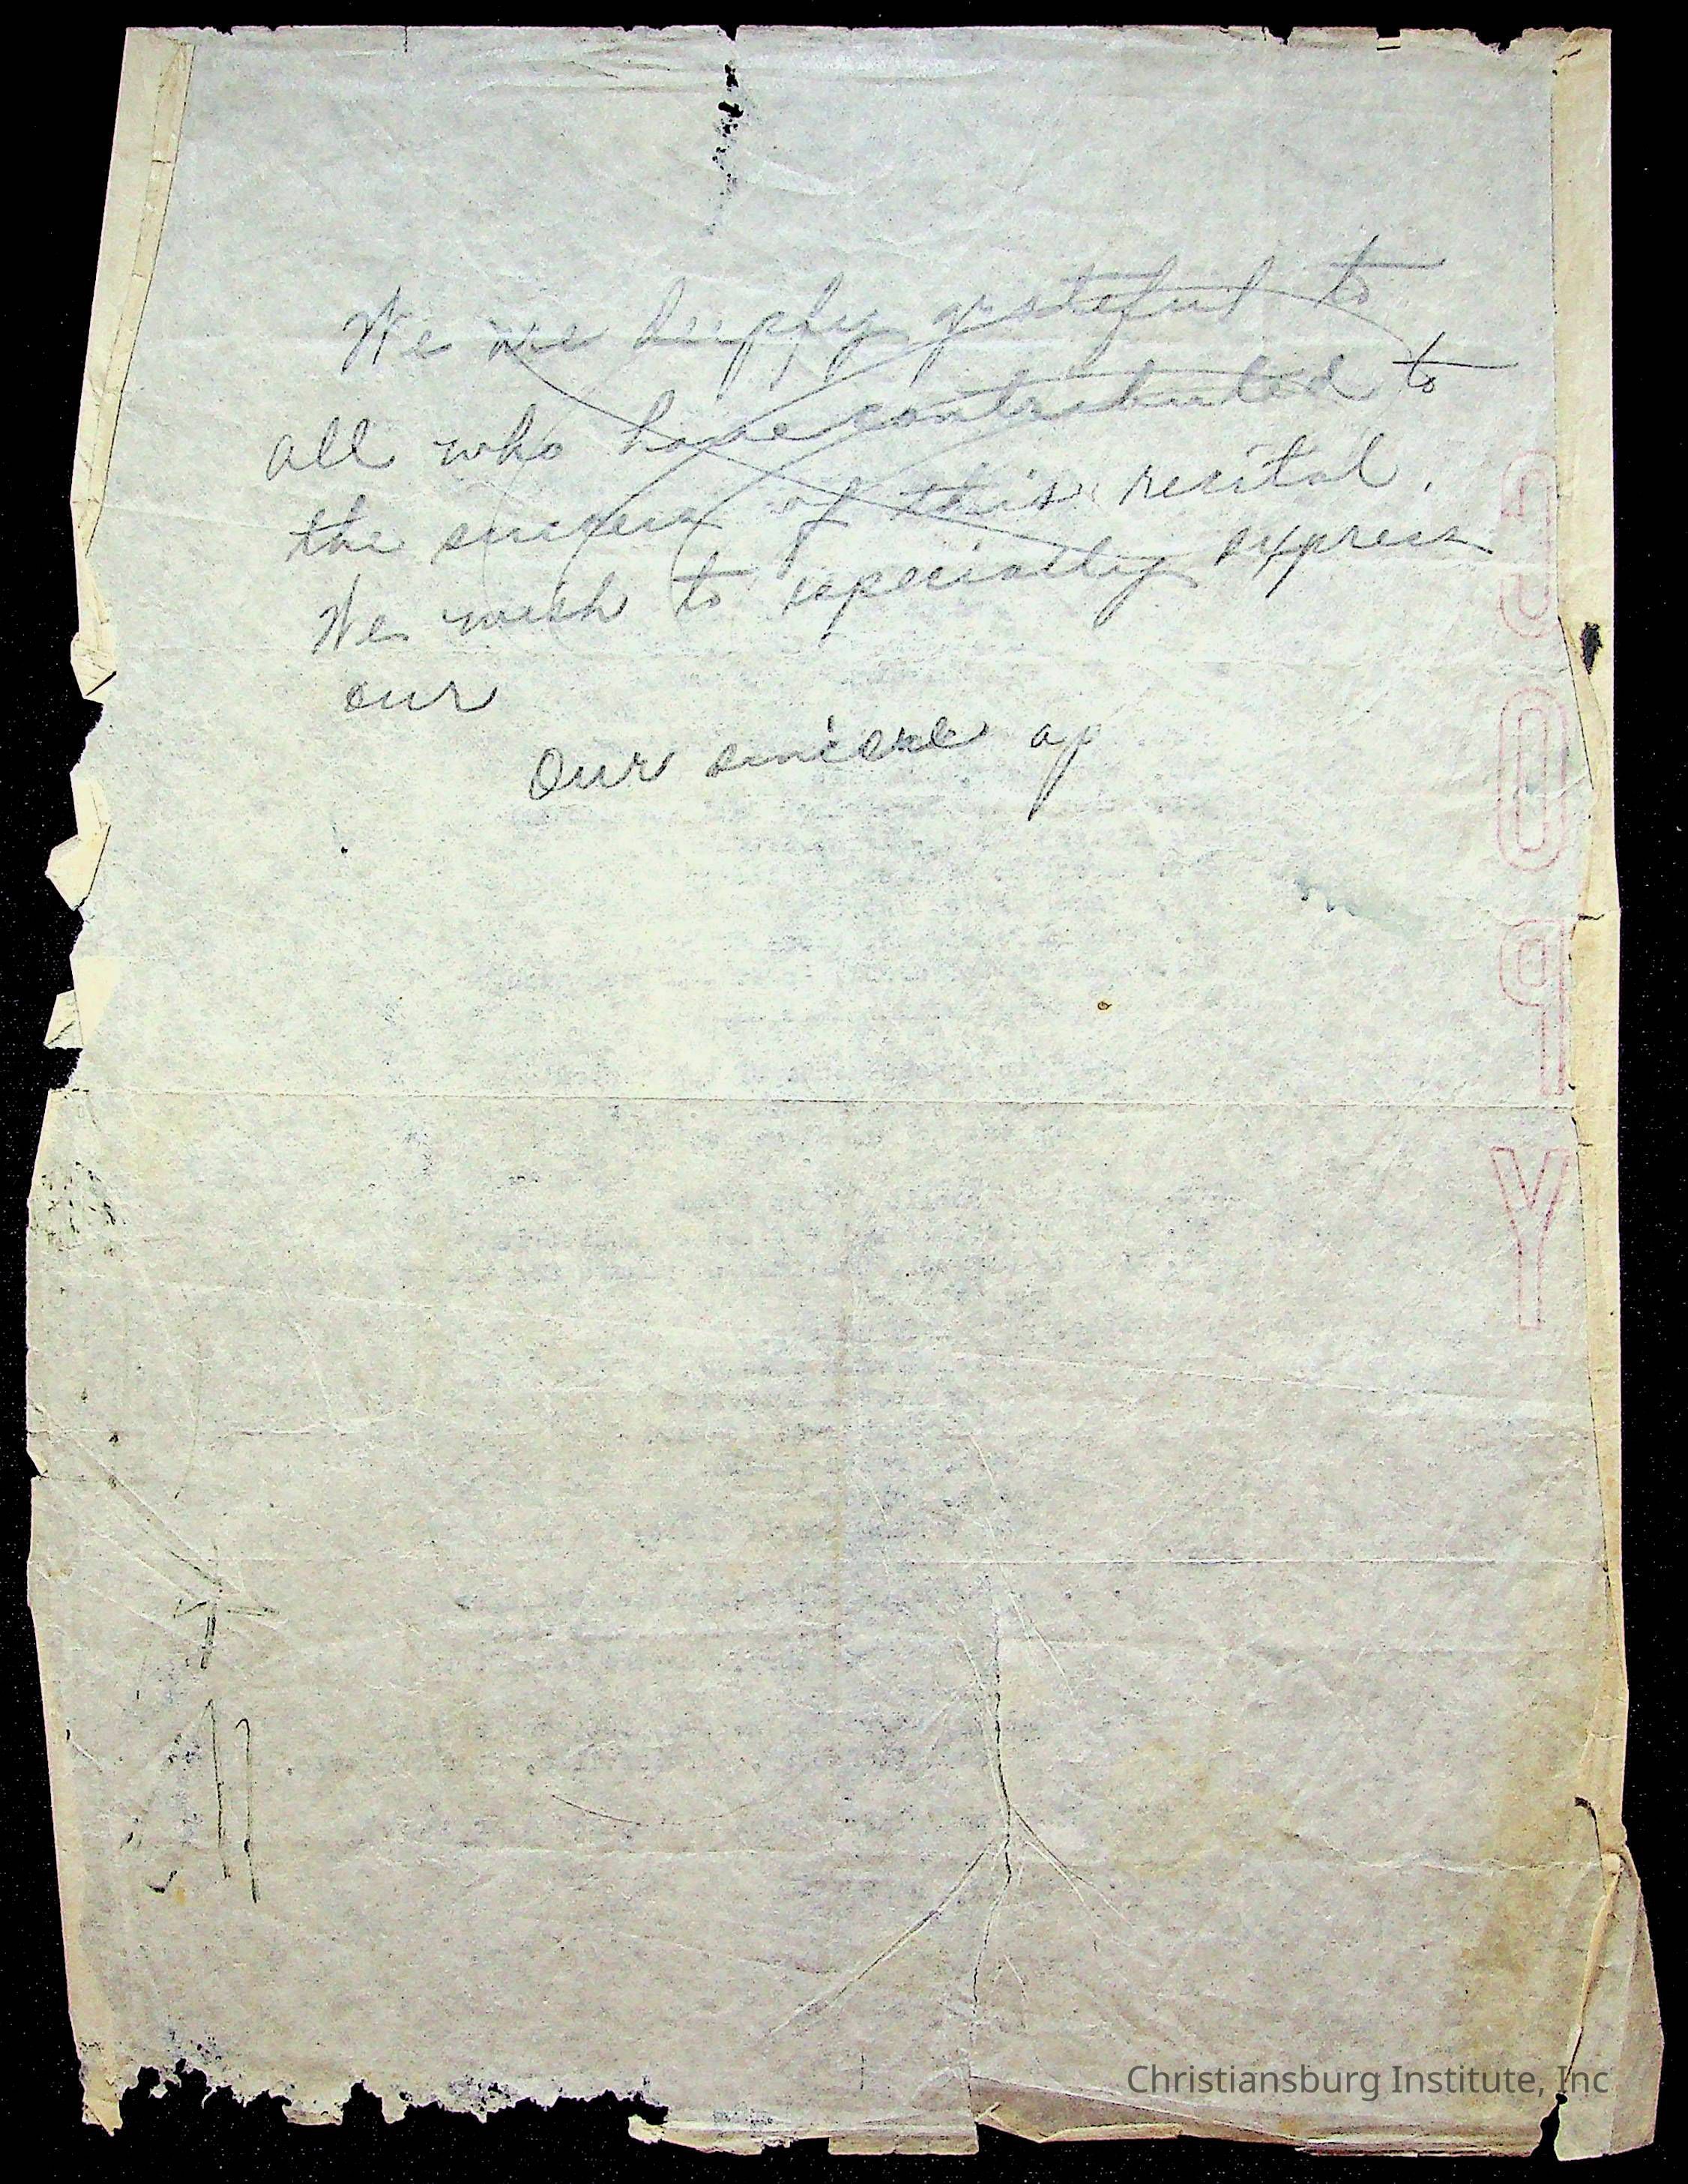 We are deeply grateful to
all who have contributed to
the success of this recital.
We wish to especially express
our
Our sincere ap
COPY
Christiansburg Institute, Inc